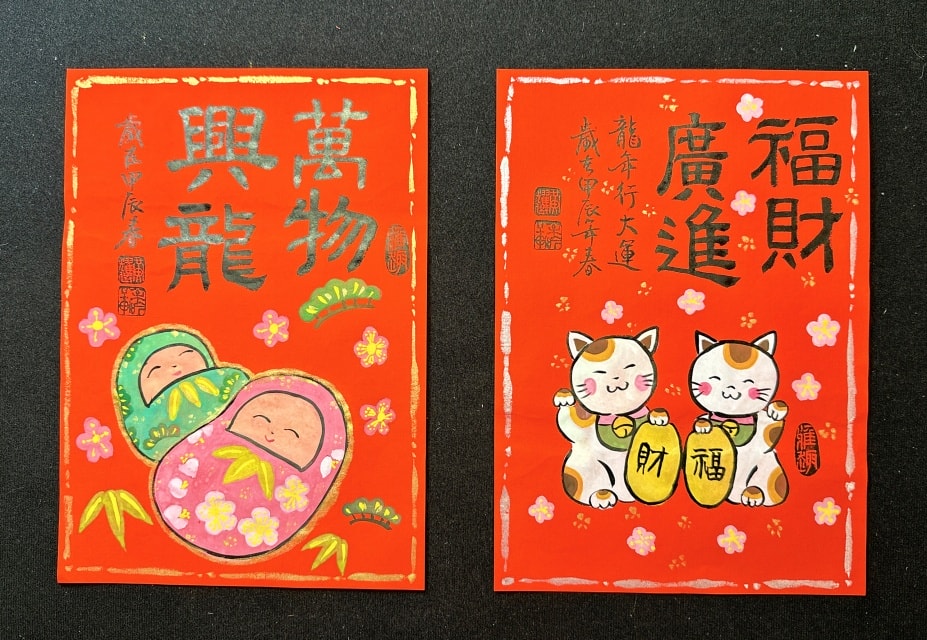 萬物
興龍
歲在甲辰春
福財
廣進
龍年行大運
歲在甲辰年春
財
福